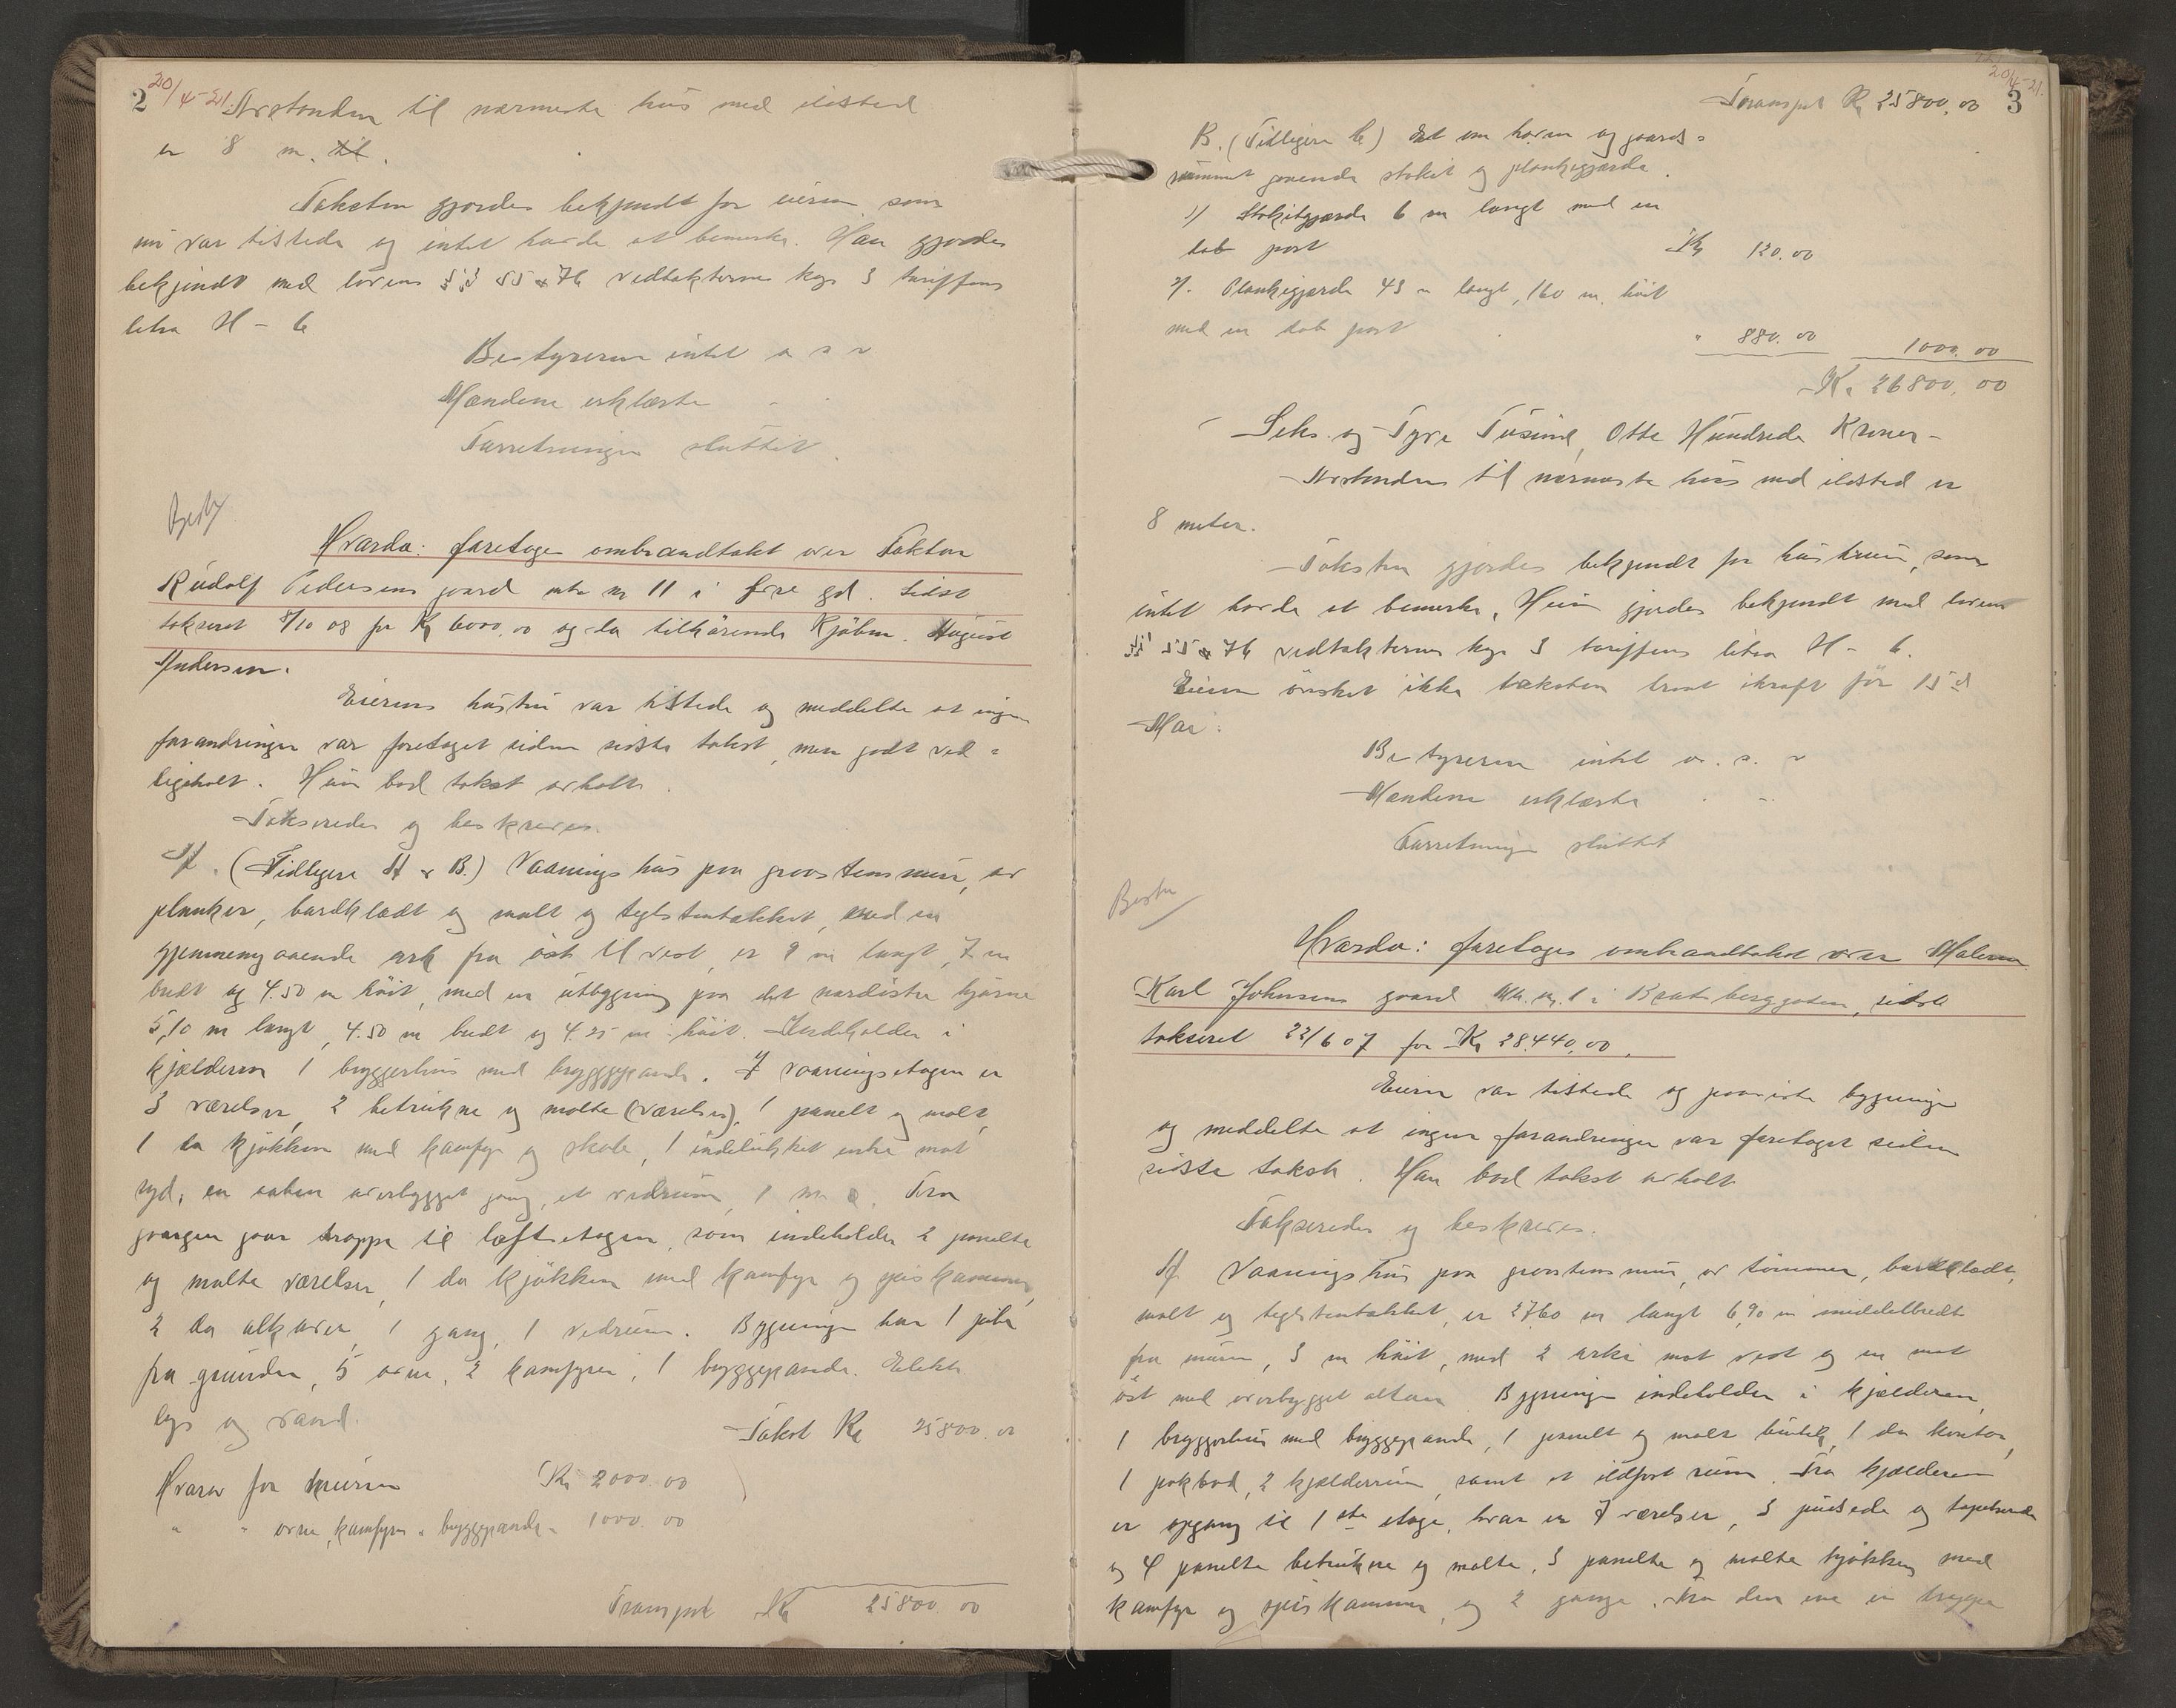 2 20/4-21. Avstanden til nærmeste hus med ildsted
er 8 m.
Taksten gjordes bekjendt for eieren som
nu var tilstede og intet havde at bemerke. Han gjordes
bekjendt med lovens §§ 55 & 76 vedtekternes kap 3 tariffens
litra H - 6
Bestyreren intet
Mændene erklærte
Forretningen sluttet.
Hvorda: foretoges ombrandtakst over Faktor
Rudolf Pedersens gaard mtr nr 11 i gd. sidst
takseret /10 08 for Kr 6000,00 og da tilhørende Kjøbm. August
Andersen.
Eierens hustru var tilstede og meddelte at ingen
forandringer var foretaget siden sidste takst, men godt ved=
ligeholt. Hun bad takst avholt.
Takseredes og beskreves.
A. (Tidligere A & B.) Vaaningshus paa graastensmur, av
planker, bordklædt og malt og teglstentækket, med en
gjennemgaaende ark fra øst til vest, er 9 m langt, 7 m
bredt og 4.50 m høit, med en utbygning paa det nordøstre hjørne
5,10 m langt, 4.50 m bredt og 4.25 m høit. Indeholder i
kjælderen 1 bryggerhus med bryggepande. I vaaningsetagen er
3 værelser, 2 betrukne og malte (værelser), 1 panelt og malt,
1 da kjøkken med komfyr og skab, 1 indelukket entre mot
syd, en aaben overbygget gang, et vedrum, 1 Fra
gangen gaar trappe til loftsetagen, som indeholder 2 panelte
og malte værelser, 1 da kjøkken med komfyr og spiskammer,
2 da alkover, 1 gang, 1 vedrum. Bygningen har 1 pibe
fra grunden, 5 ovne, 2 komfyrer, 1 bryggepande. Elektr.
lys og vand.
Takst Kr 25800.00
Hvorav for murene Kr 2000.00
" " ovne, komfyrer & bryggepande " 1000.00
Transport Kr 25800.00
20/4-21. 3
Transport Kr 25800,00
B. (Tidligere C) Et om haven og gaards=
rummet gaaende stakit og plankegjærde.
1) Stakitgjærde 6 m langt med en
dob port Kr 120.00
2). Plankegjærde 43 m langt, 160 m. høit
med en dob port " 880.00 1000.00
Kr 26800.00
Seks og Tyve Tusind Otte Hundrede Kroner -
Avstanden til nærmeste hus med ildsted er
8 meter.
Taksten gjordes bekjendt for hustruen, som
intet havde at bemerke. Hun gjordes bekjendt med lovens
§§ 55 & 76 vedtekternes kap 3 tariffens litra H - 6.
Eieren ønsket ikke taksten traat ikraft før 15d
Mai.
Bestyreren intet
Mændene erklærte
Forretningen sluttet
Hvorda: foretoges ombrandtakst over Maleren
Karl Johnsens gaard Mtr. nr. 1 i Bratsberggaten, sidst
takseret 22/6 07 for Kr 28.440,00.
Eieren var tilstede og paaviste bygningen
og meddelte at ingen forandringer var foretaget siden
sidste takst. Han bad takst avholt
Takseredes og beskreves.
A Vaaningshus paa graastensmur, av tømmer, bordklædt,
malt og teglstentækket, er 2760 m langt 6,90 m middelbredt
fra muren, 3 m høit, med 2 arker mot vest og en mot
øst med overbygget altan. Bygningen indeholder i kjælderen
1 bryggerhus med bryggepande, 1 panelt og malt butik, 1 da kontor,
1 pakbod, 2 kjælderrum, samt et ildfast rum. Fra kjælderen
er opgang til 1ste etage, hvor er 7 værelser, 3 pudsede og tapetserede
og 4 panelte betrukne og malte, 3 panelte og malte kjøkken med
komfyr og spiskammer, og 2 gange. Fra den ene er trappe